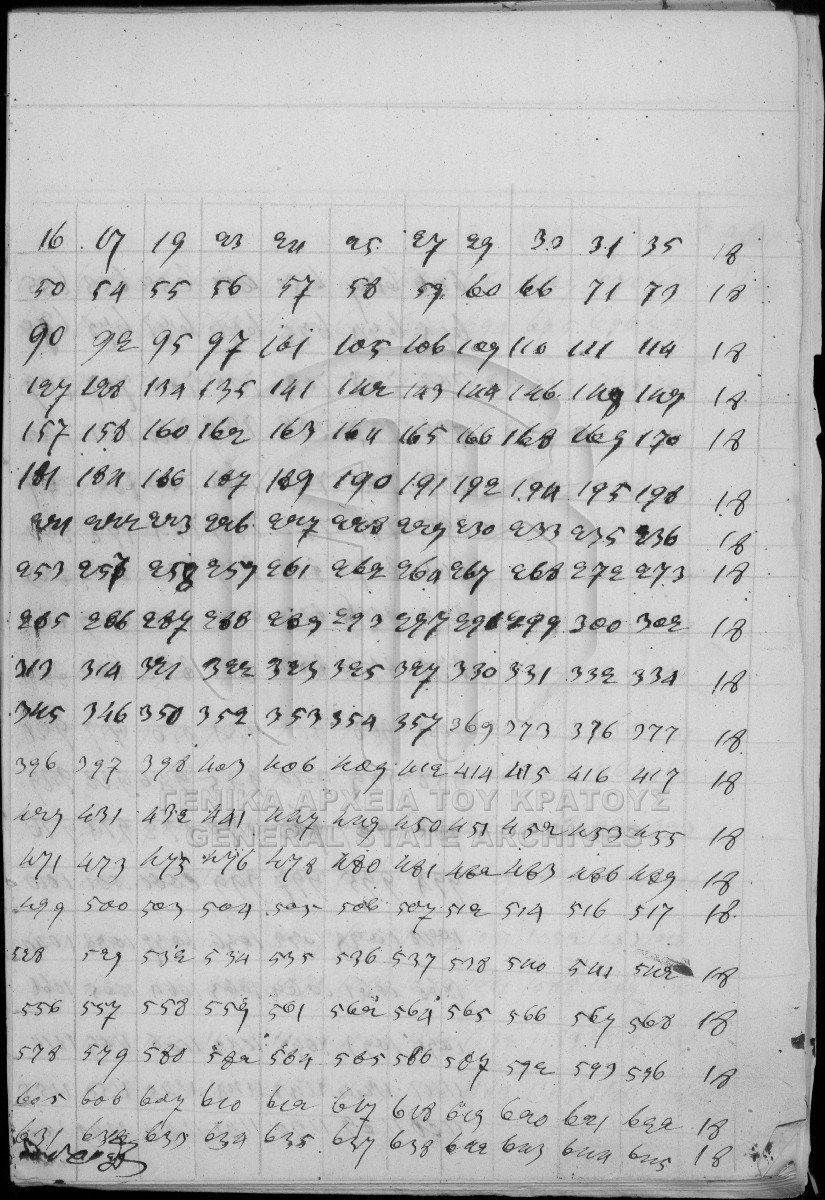 16 17 19 23 24 25 27 29 30 31 35 18
50 54 55 56 57 58 59 60 66 71 73 18
90 92 95 97 101 105 106 109 110 111 114 18
127 128 134 135 141 142 143 144 146 148 149 18
157 158 160 162 163 164 165 166 168 169 170 18
181 184 186 187 189 190 191 192 194 195 198 18
221 222 223 226 227 228 229 230 233 235 236 18
253 257 258 259 261 262 264 267 268 272 273 18
285 286 287 288 289 293 297 298 299 300 302 18
313 314 321 322 323 325 327 330 331 332 334 18
345 346 350 352 353 354 357 369 373 376 377 18
396 397 398 403 406 409 412 414 415 416 417 18
ΓΕΝΙΚΑ ΑΡΧΕΙΑ ΤΟΥ ΚΡΑΤΟΥΣ
429 431 432 441 447 449 450 451 452 453 455 18
GENERAL STATE ARCHIVES
471 473 475 476 478 480 481 482 483 486 489 18
499 500 503 504 505 506 507 512 514 516 517 18
528 529 532 534 535 536 537 538 540 541 542 18
556 557 558 559 561 562 564 565 566 567 568 18
578 579 580 582 584 585 586 587 592 593 596 18
605 606 607 610 612 617 618 619 620 621 622 18
631 632 633 634 635 637 638 642 643 644 645 18